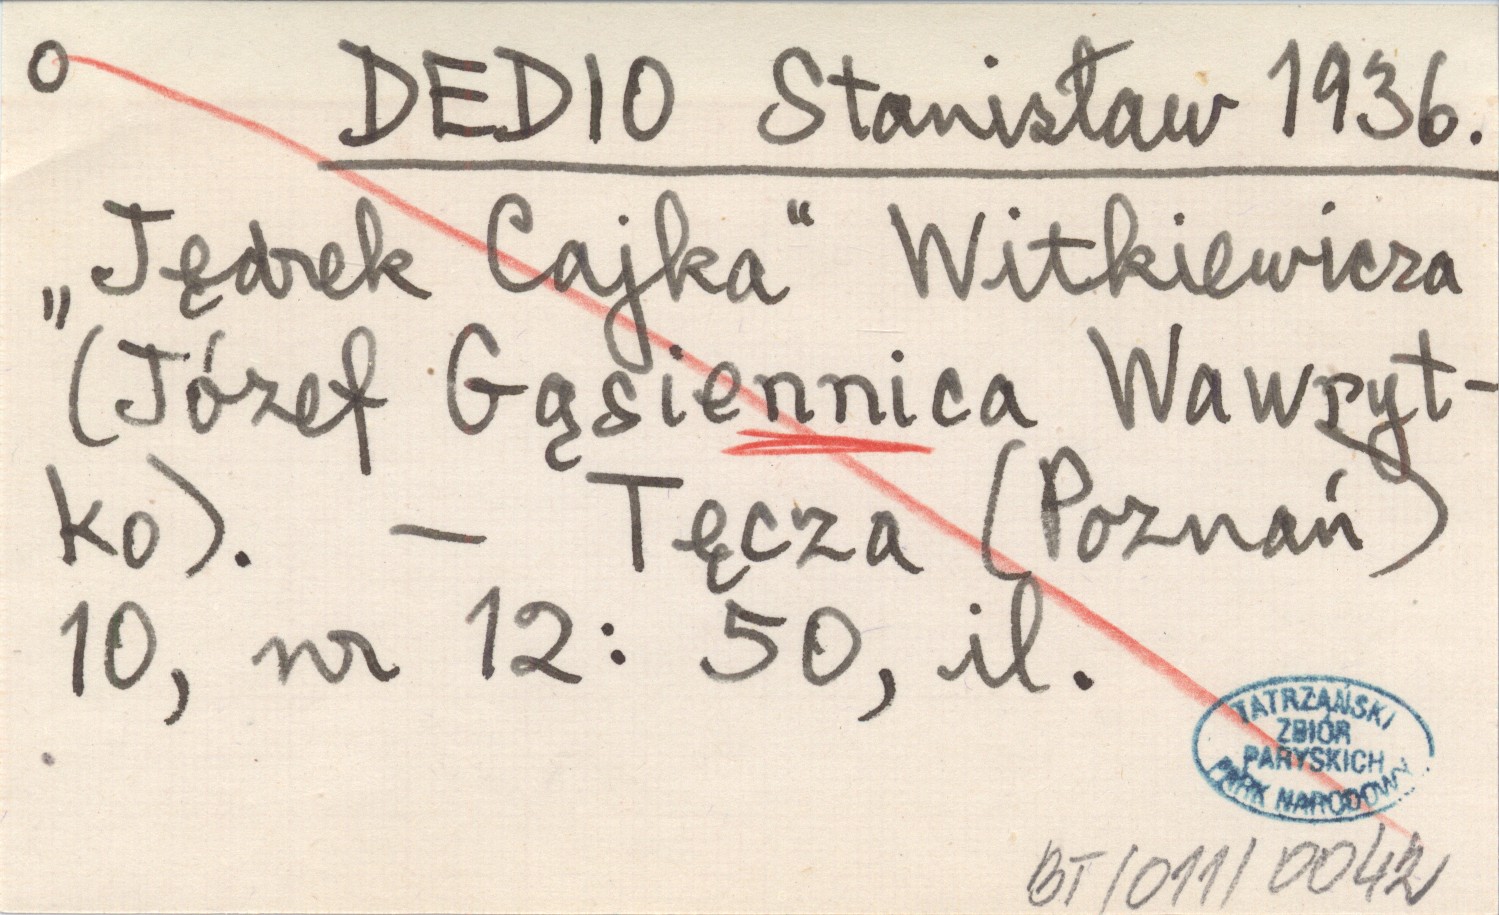 O DEDIO Stanisław 1936.
„Jędrek Cajka“ Witkiewicza
(Józef Gąsiennica Wawryt-
ko). — Tęcza (Poznań)
10, nr 12: 50, il.
TATRZAŃSKI
ZBIÓR
PARYSKICH
PARK NARODOWY
BT/011/0042